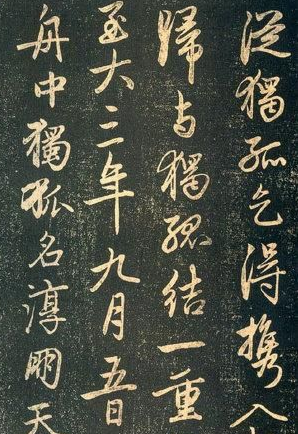 從獨孤乞得攜入
歸與獨孤結一重
至大三年九月五日
舟中獨孤名淳朋天